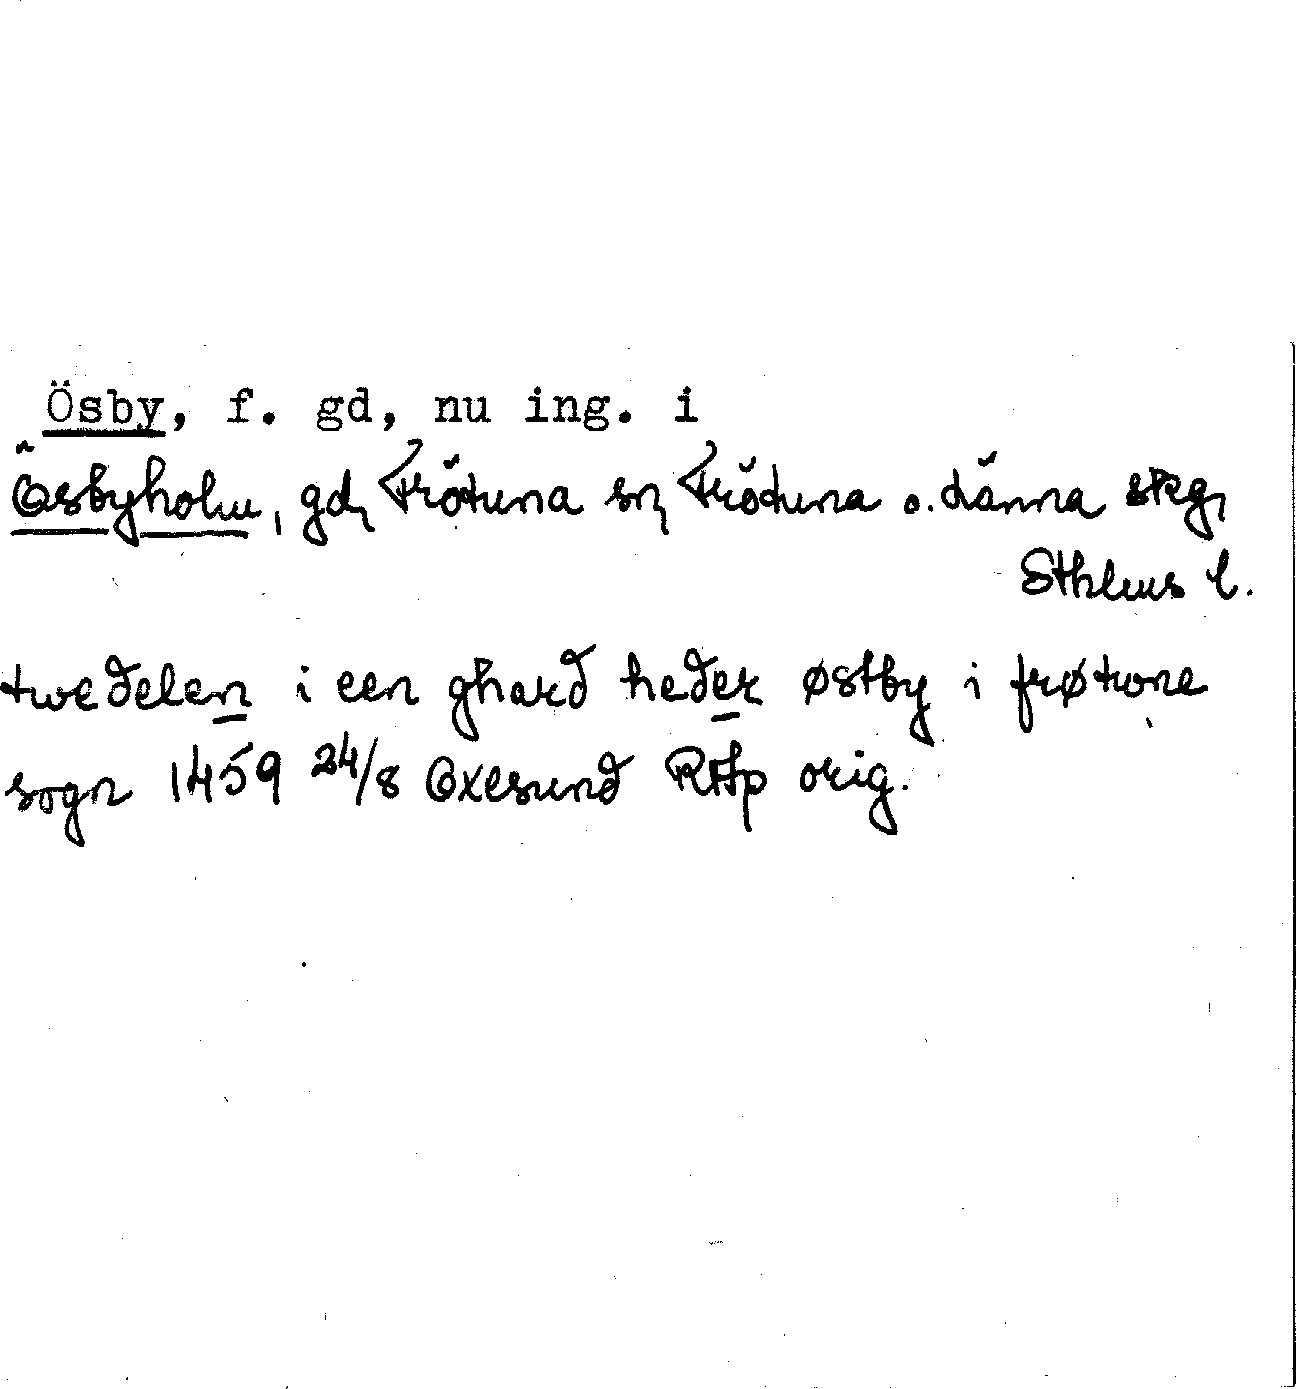 Ösby, f. gd, nu ing. i
Ösbyholm, gd, Frötuna sn, Frötuna o. Länna skg,
Sthlms l.
twedelen i een ghard heder østby i frøtwne
sogn 1459 24/8 Oxesund RAp orig.